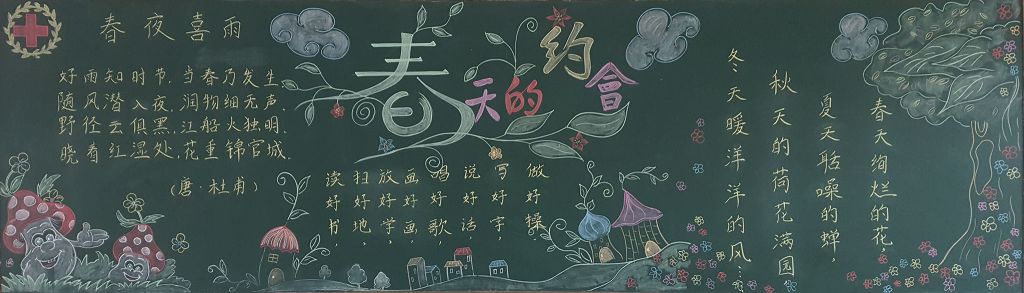 春夜喜雨
好雨知时节,当春乃发生,
随风潜入夜,润物细无声,
野径云俱黑,江船火独明,
晓看红湿处,花重锦官城.
(唐·杜甫)
春天的约會
读好书,
扫好地,
放好学,
画好画,
唱好歌,
说好话,
写好字,
做好操
春天绚烂的花,
夏天聒噪的蝉,
秋天的荷花满园
冬天暖洋洋的风……